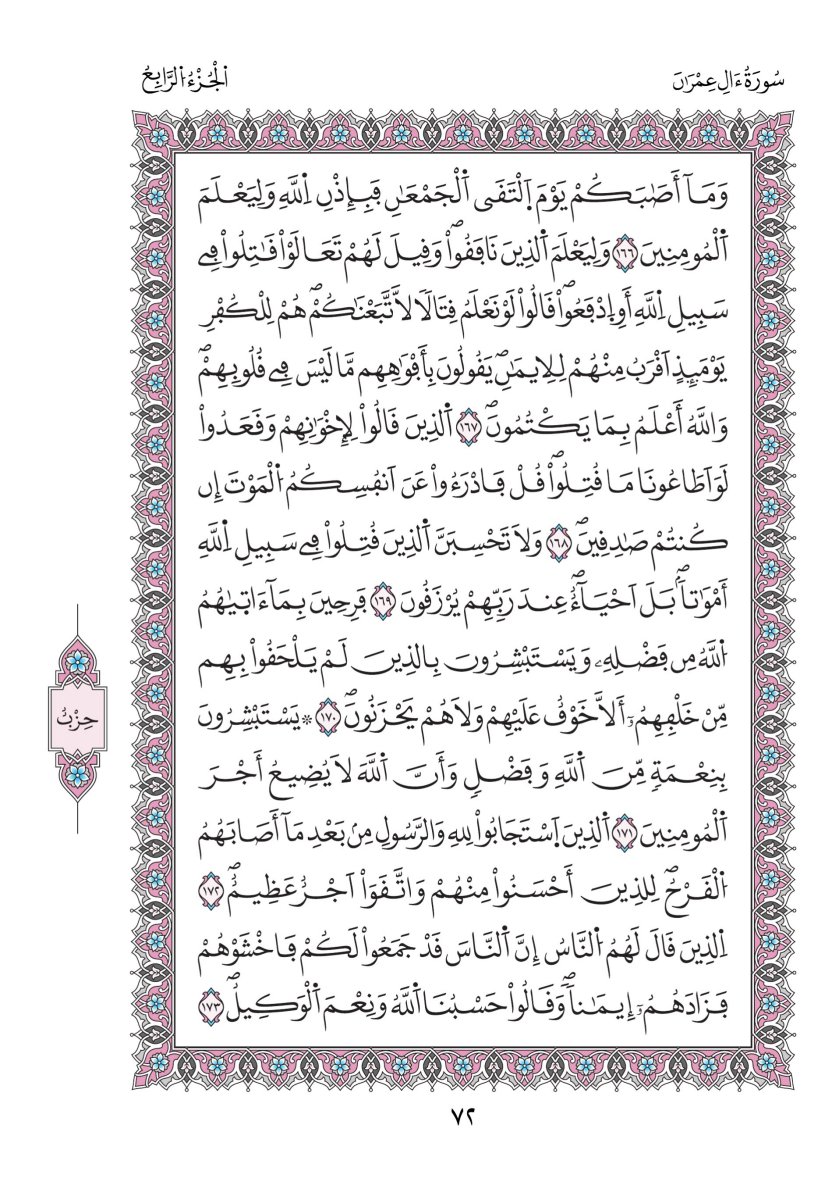 سُورَةُ ءَالِ عِمْرَٰنَ
اَ۬لْجُزْءُ اُ۬لرَّابِعُ
وَمَآ أَصَٰبَكُمْ يَوْمَ اَ۪لْتَقَى اَ۬لْجَمْعَٰنِ فَبِإِذْنِ اِ۬للَّهِ وَلِيَعْلَمَ
اَ۬لْمُومِنِينَ ١٦٦ وَلِيَعْلَمَ اَ۬لذِينَ نَافَقُواْۖ وَقِيلَ لَهُمْ تَعَالَوْاْ قَٰتِلُواْ فِے
سَبِيلِ اِ۬للَّهِ أَوِ اِ۪دْفَعُواْۖ قَالُواْ لَوْ نَعْلَمُ قِتَالاٗ لَّاتَّبَعْنَٰكُمْۖ هُمْ لِلْكُفْرِ
يَوْمَئِذٍ اَقْرَبُ مِنْهُمْ لِلِايمَٰنِۖ يَقُولُونَ بِأَفْوَٰهِهِم مَّا لَيْسَ فِے قُلُوبِهِمْۖ
وَاللَّهُ أَعْلَمُ بِمَا يَكْتُمُونَۖ ١٦٧ اَ۬لذِينَ قَالُواْ لِإِخْوَٰنِهِمْ وَقَعَدُواْ
لَوَ اَطَاعُونَا مَا قُتِلُواْۖ قُلْ فَادْرَءُواْ عَنَ اَنفُسِكُمُ اُ۬لْمَوْتَ إِن
كُنتُمْ صَٰدِقِينَۖ ١٦٨ وَلَا تَحْسِبَنَّ اَ۬لذِينَ قُتِلُواْ فِے سَبِيلِ اِ۬للَّهِ
أَمْوَٰتاَۢۖ بَلَ اَحْيَآءٌۖ عِندَ رَبِّهِمْ يُرْزَقُونَ ١٦٩ فَرِحِينَ بِمَآ ءَات۪يٰهُمُ
اُ۬للَّهُ مِن فَضْلِهِۦ وَيَسْتَبْشِرُونَ بِالذِينَ لَمْ يَلْحَقُواْ بِهِم
مِّنْ خَلْفِهِمُۥٓ أَلَّا خَوْفٌ عَلَيْهِمْ وَلَا هُمْ يَحْزَنُونَۖ ١٧٠ ۞ يَسْتَبْشِرُونَ
حِزْبٌ
بِنِعْمَةٖ مِّنَ اَ۬للَّهِ وَفَضْلٖ وَأَنَّ اَ۬للَّهَ لَا يُضِيعُ أَجْرَ
اَ۬لْمُومِنِينَ ١٧١ اَ۬لذِينَ اَ۪سْتَجَابُواْ لِلهِ وَالرَّسُولِ مِنۢ بَعْدِ مَآ أَصَابَهُمُ
اُ۬لْقَرْحُۖ لِلذِينَ أَحْسَنُواْ مِنْهُمْ وَاتَّقَوَاْ اَجْرٌ عَظِيمٌۖ ١٧٢
اِ۬لذِينَ قَالَ لَهُمُ اُ۬لنَّاسُ إِنَّ اَ۬لنَّاسَ قَدْ جَمَعُواْ لَكُمْ فَاخْشَوْهُمْ
فَزَادَهُمُۥٓ إِيمَٰناٗۖ وَقَالُواْ حَسْبُنَا اَ۬للَّهُ وَنِعْمَ اَ۬لْوَكِيلُۖ ١٧٣
٧٢